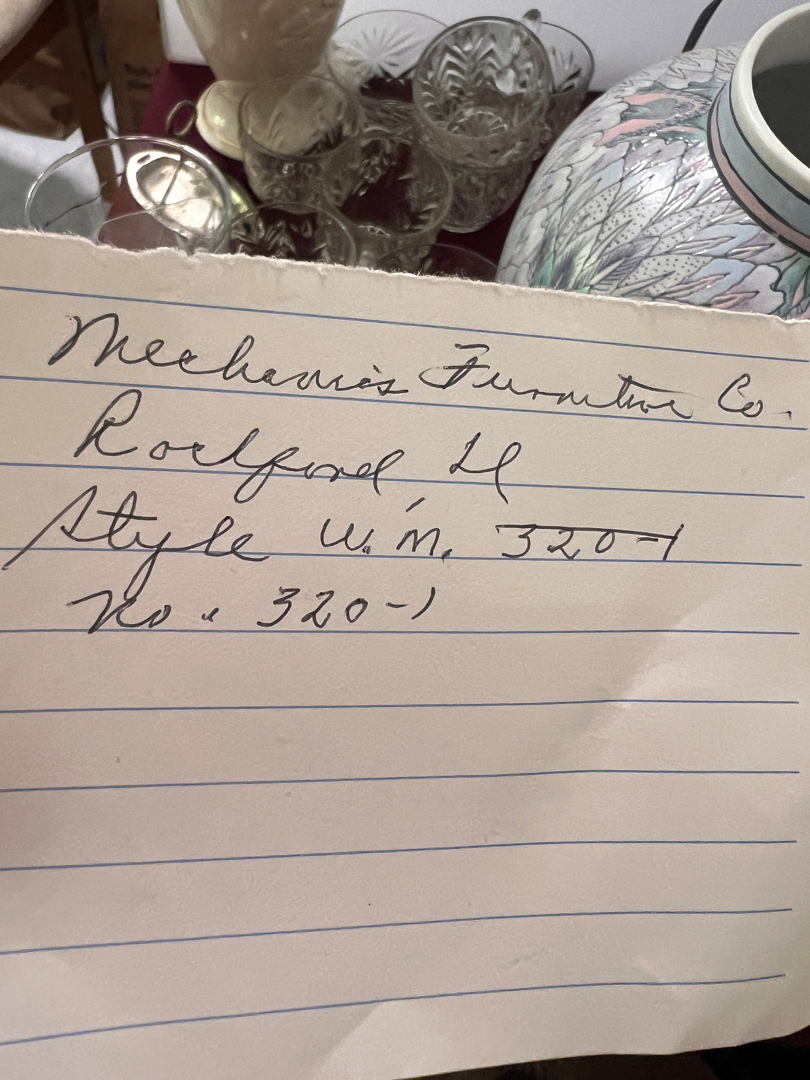 Mechanics Furniture Co.
Rockford, Il
Style W.M. 320-1
No. 320-1